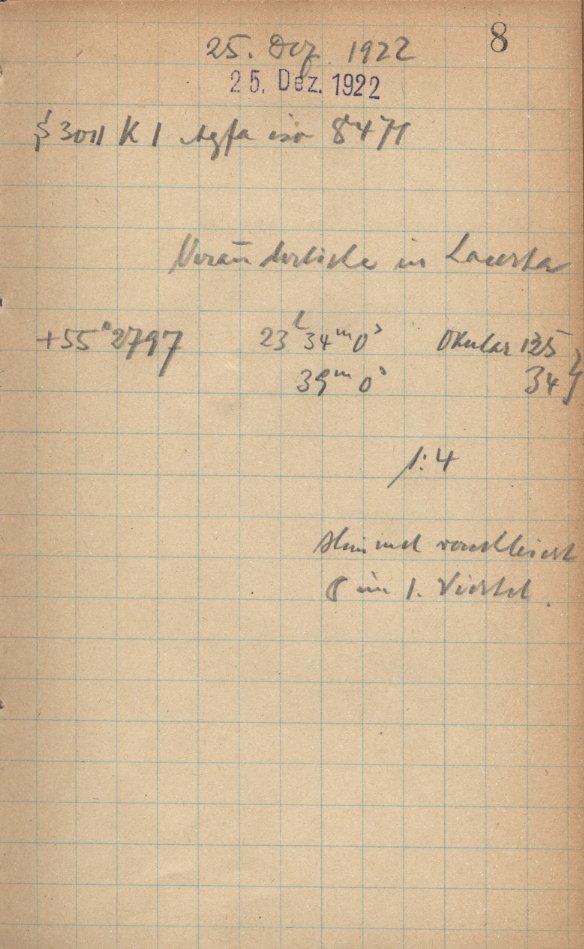 8
25. Dez. 1922
25. Dez. 1922
S 3011 K 1 Agfa iso 8471
Veränderliche in Lacerta
+55° 2797 23h 34m 0s Okular 125
39m 0s 34 }
1:4
Himmel verschleiert
im 1. Viertel.